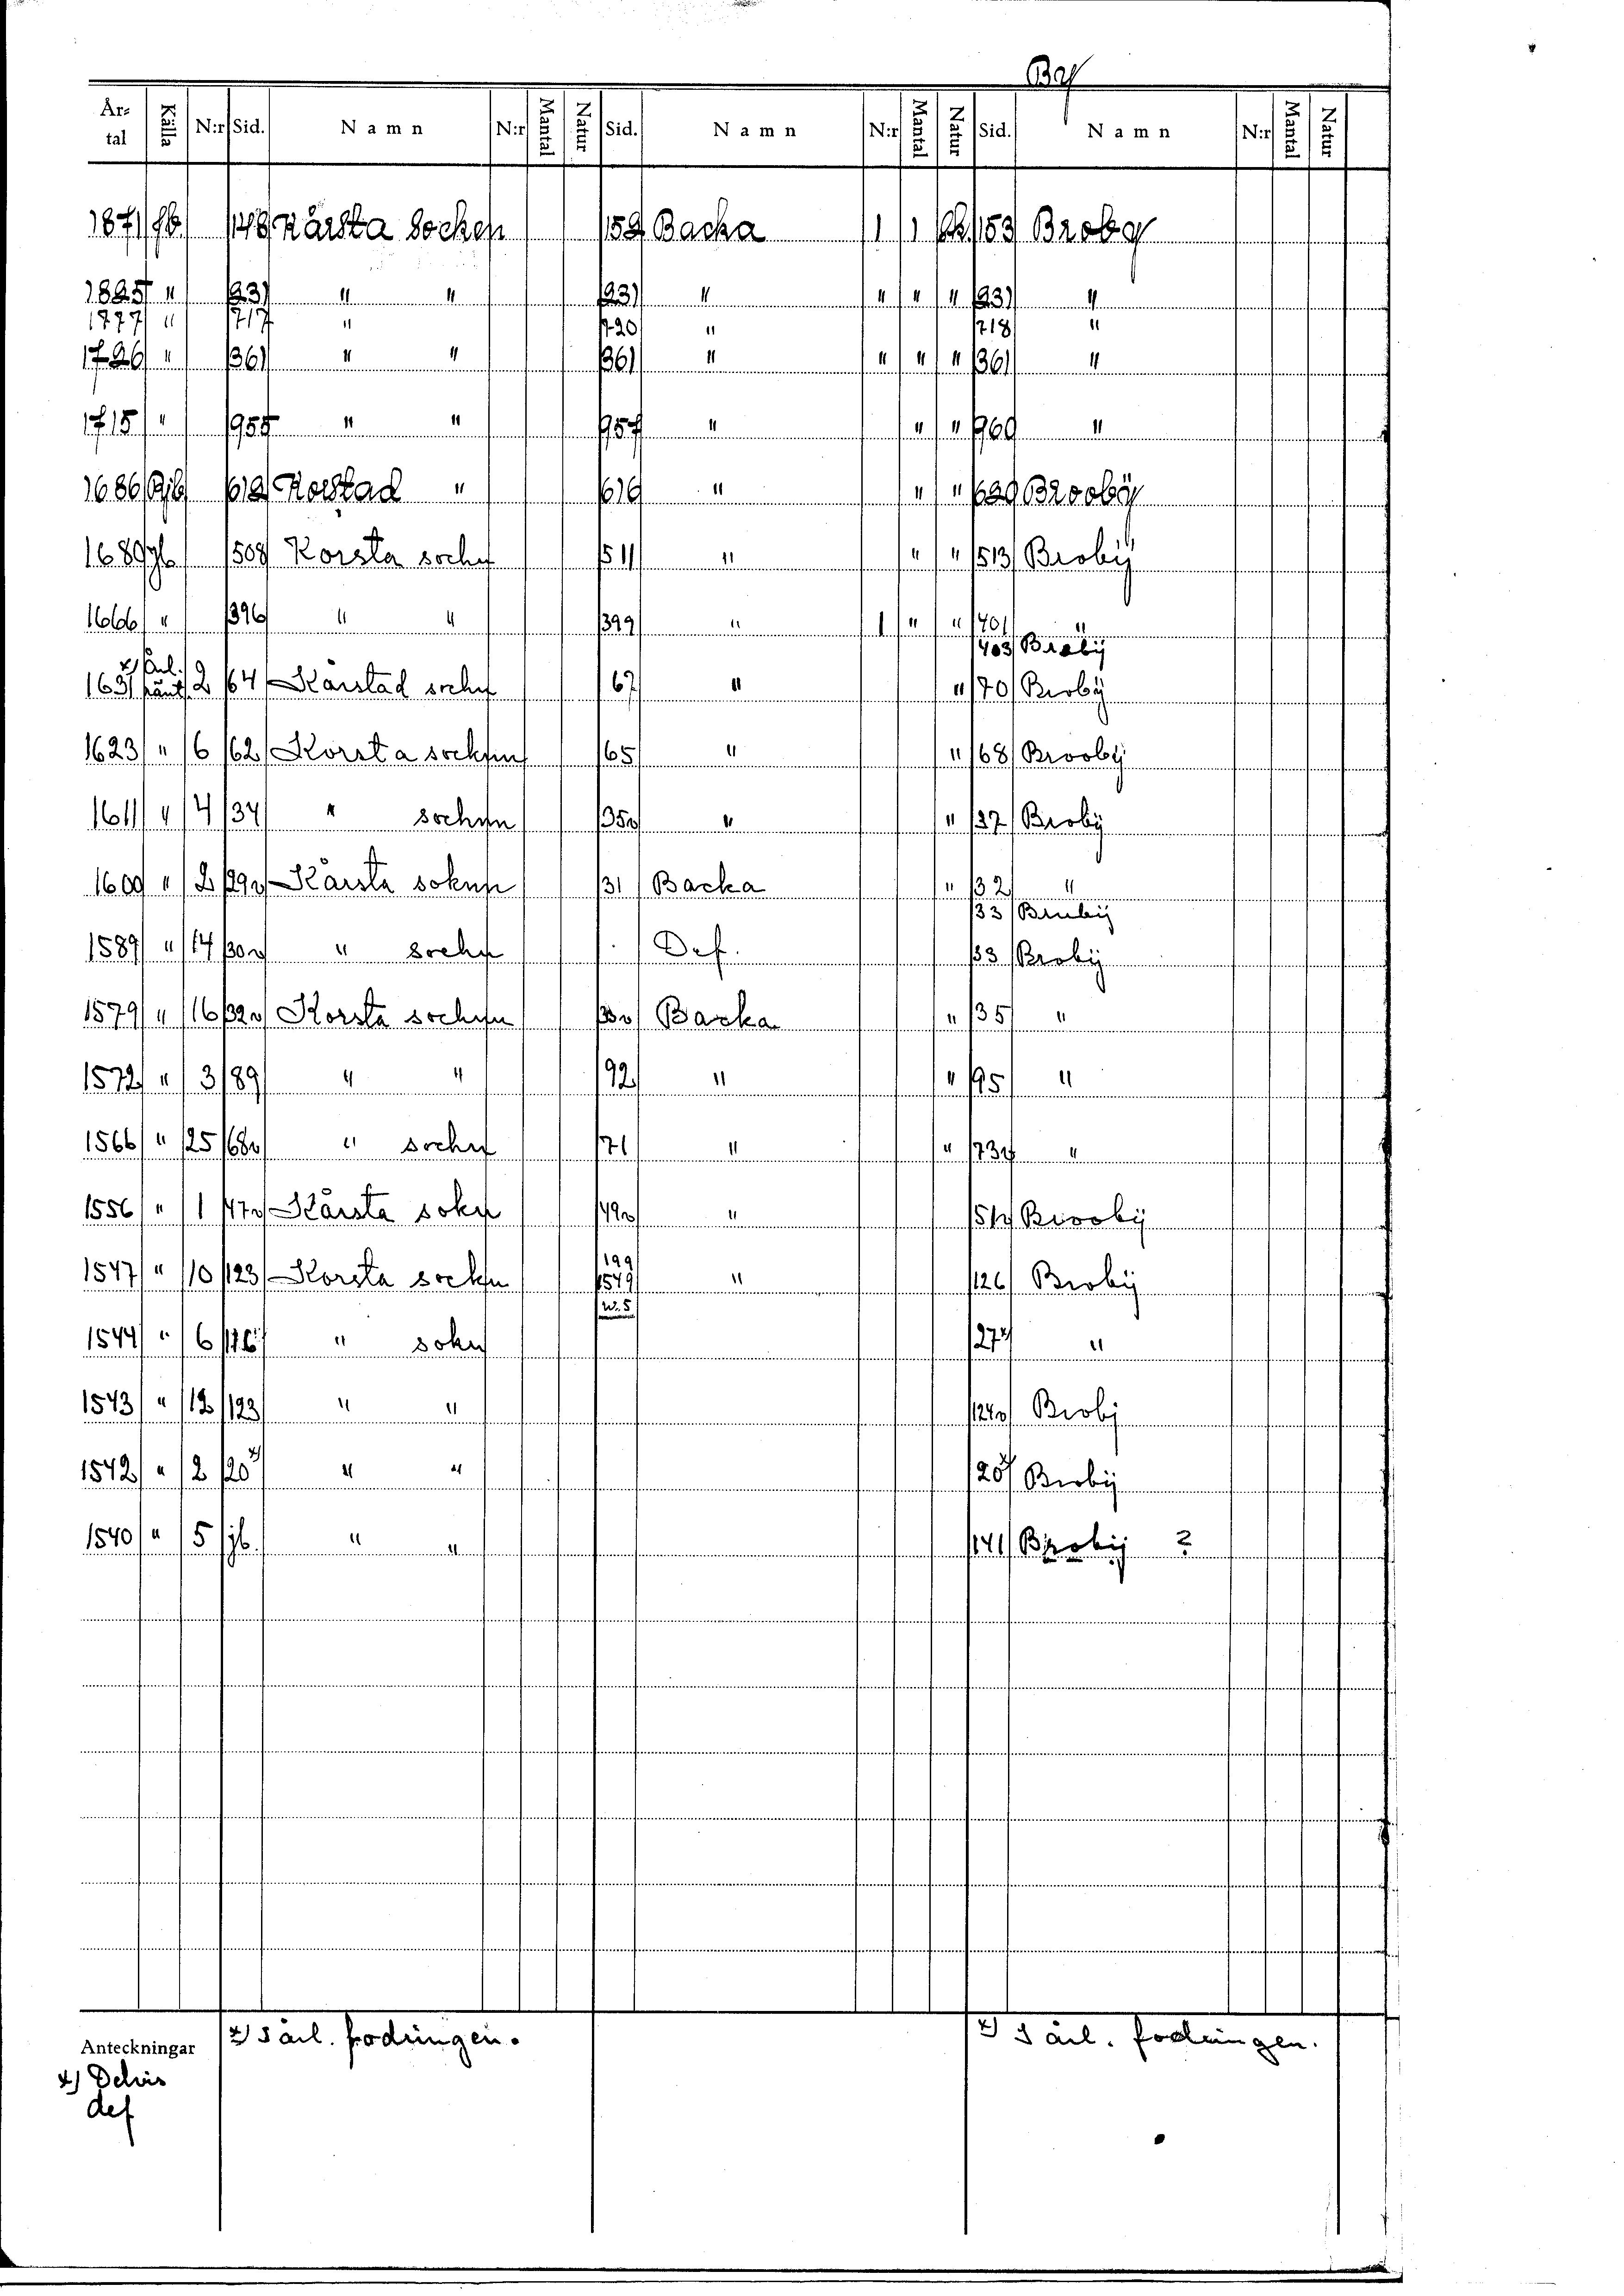 By
År-tal Källa N:r Sid. Namn N:r Mantal Natur Sid. Namn N:r Mantal Natur Sid. Namn N:r Mantal Natur
1871 jb 148 Kårsta Socken 152 Backa 1 1 Sk. 153 Broby
1825 " 231 " " 231 " " " " 231 "
1777 " 717 " 720 " 718 "
1726 " 361 " " 361 " " " " 361 "
1715 " 955 " " 957 " " " 960 "
1686 Rjb 612 Korstad " 616 " " " 620 Brooby
1680 jb 508 Korsta sochn 511 " " " 513 Brobij
1666 " 396 " " 399 " 1 " " 401 "
403 Brobij
1631 x) Årl. ränt. 2 64 Kårstad sochn 67 " " 70 Brobij
1623 " 6 62 Korsta socknn 65 " " 68 Broobij
1611 " 4 34 " sochnn 35v " " 37 Brobij
1600 " 2 29v Kårsta soknn 31 Backa " 32 "
33 Brubij
1589 " 14 30v " sochn Def. 33 Brobij
1579 " 16 32v Korsta sochnn 33v Backa " 35 "
1572 " 3 89 " " 92 " " 95 "
1566 " 25 68v " sochn 71 " " 73v "
1556 " 1 47v Kårsta sokn 49v " 51v Broobij
1547 " 10 123 Korsta sockn 199 1549 w.5 " 126 Brobij
1544 " 6 " sokn 27x) "
1543 " 12 123 " " 124v Brobj
1542 " 2 20x) " " 20x) Brobij
1540 " 5 jb. " " 141 Brobij ?
Anteckningar x) I årl. fodringen. x) I årl. fodringen.
x) Delvis
def